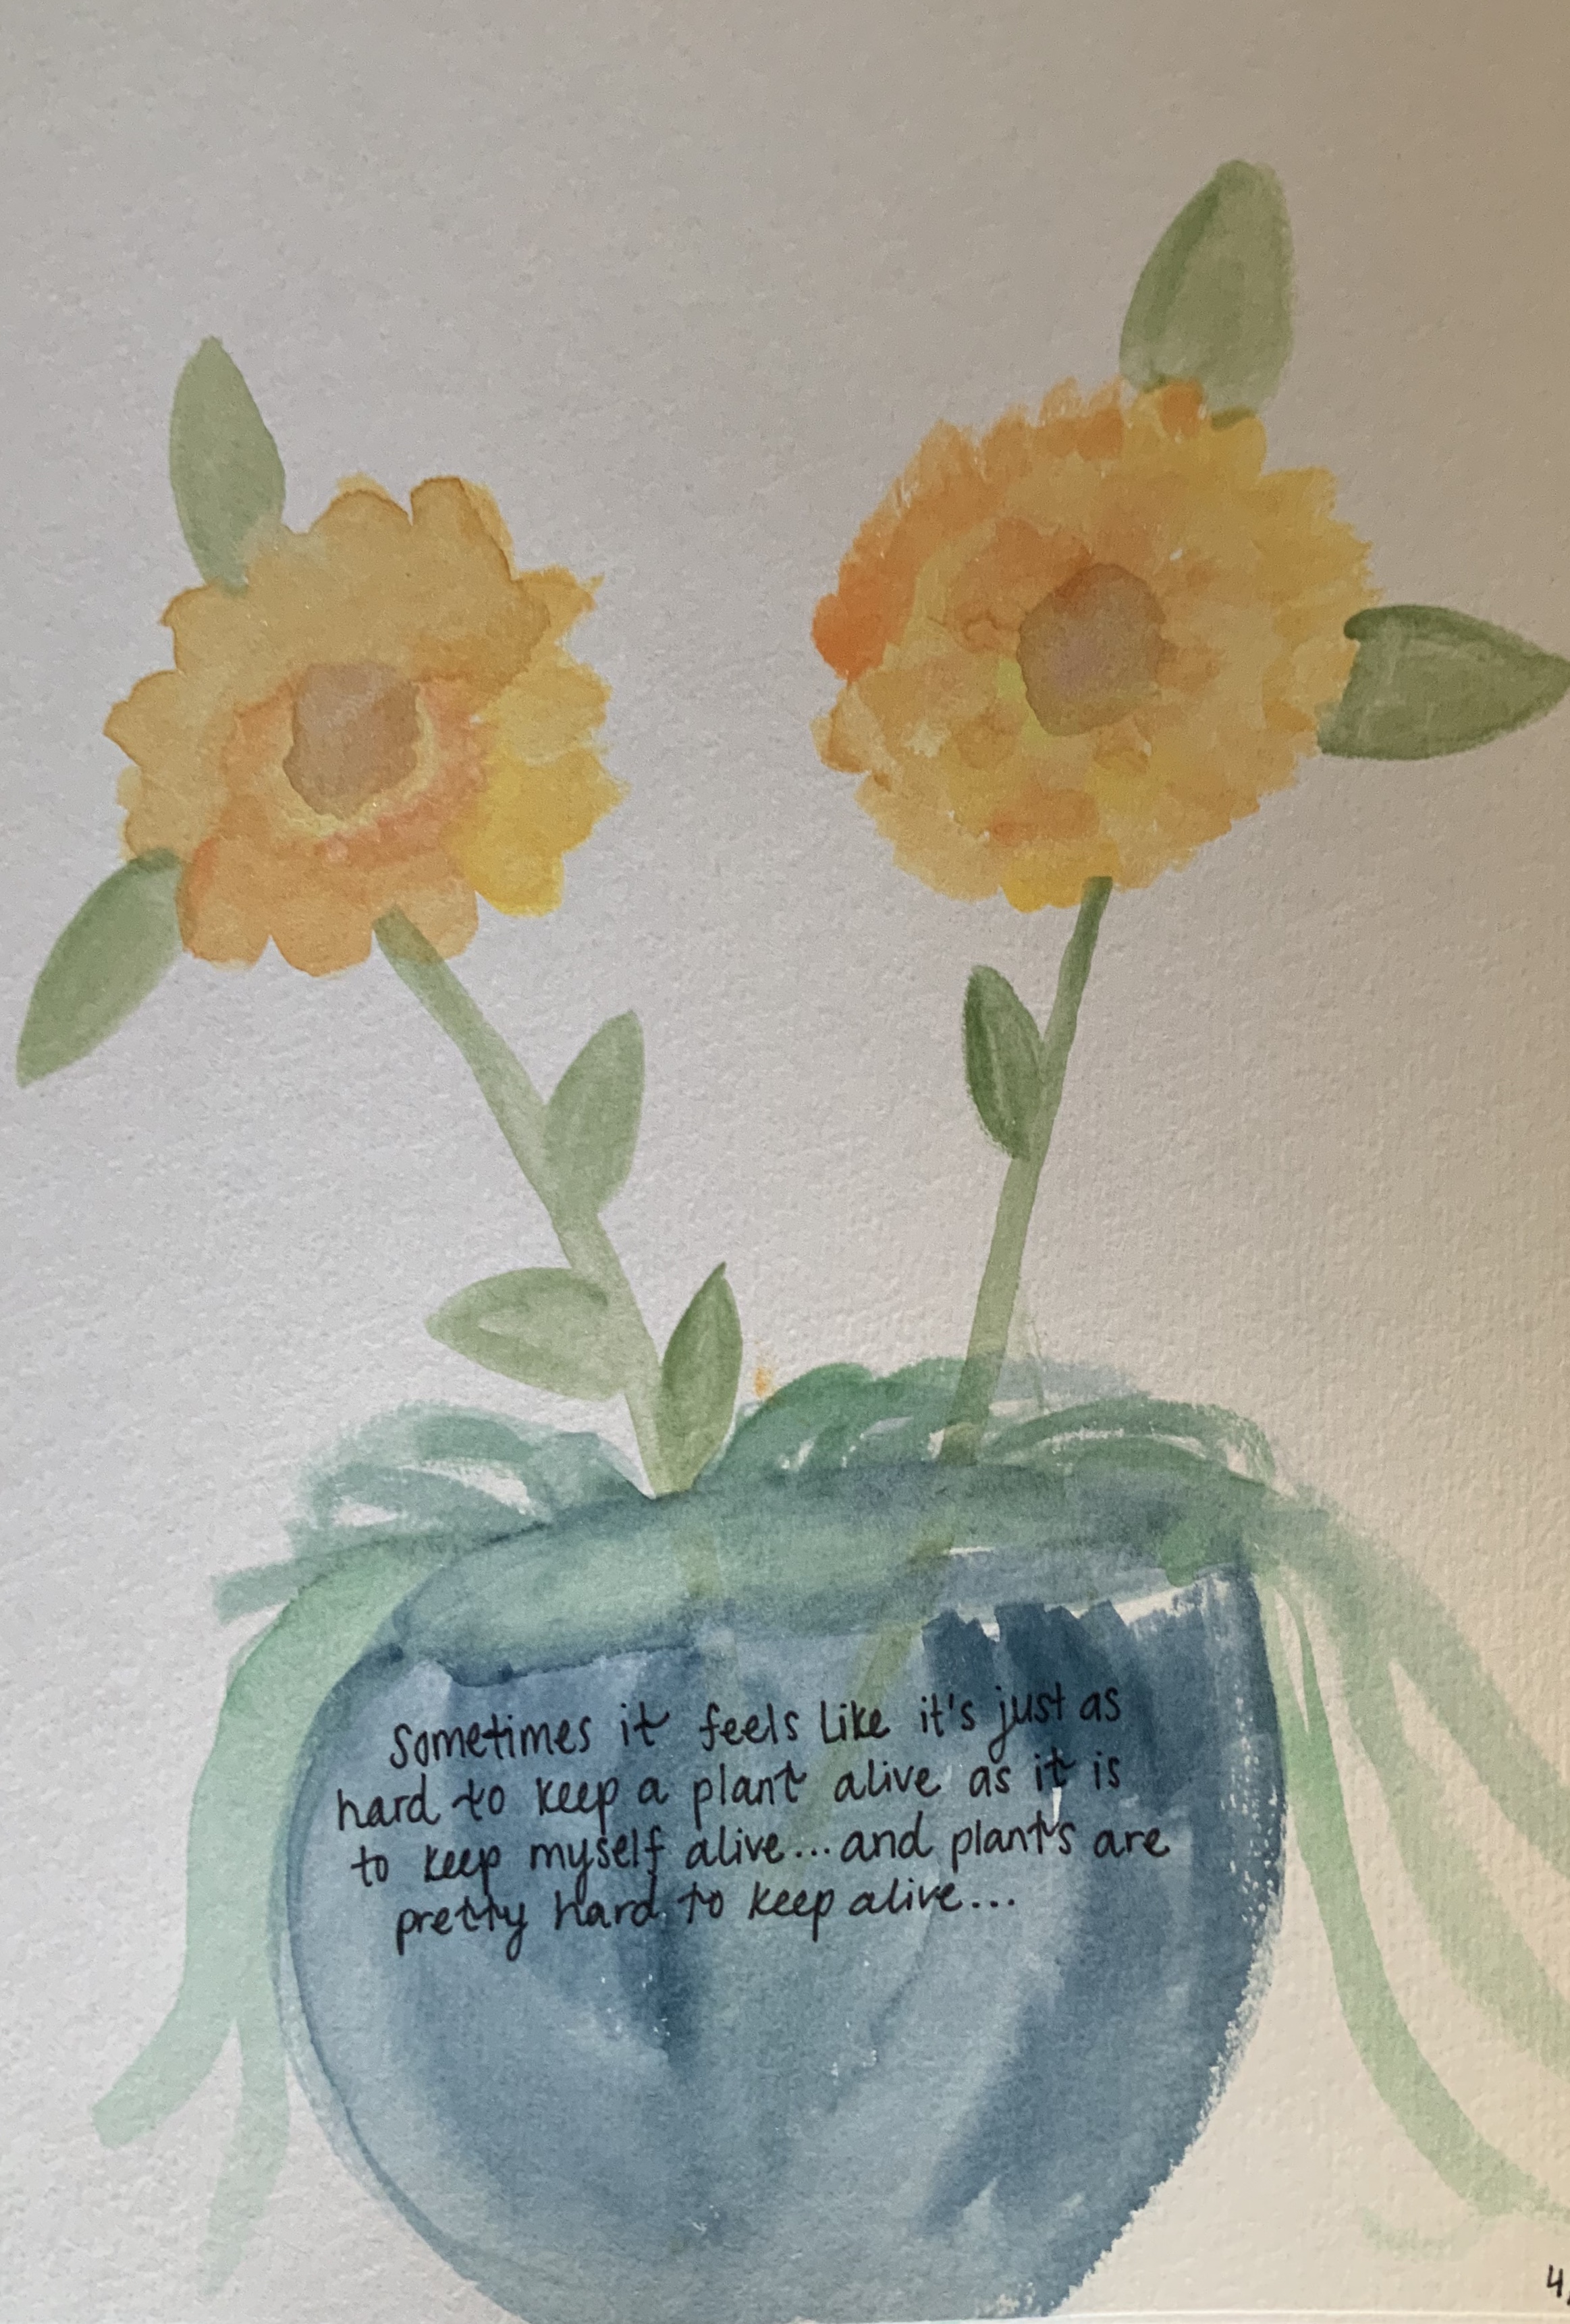 Sometimes it feels like it's just as
hard to keep a plant alive as it is
to keep myself alive...and plants are
pretty hard to keep alive...